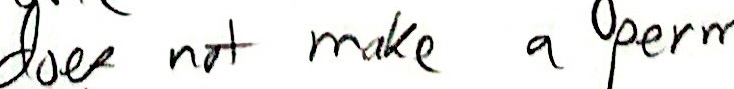 does not make a perm